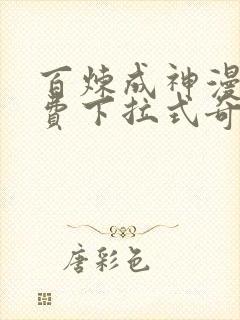 百炼成神漫
费下拉式奇
唐彩色